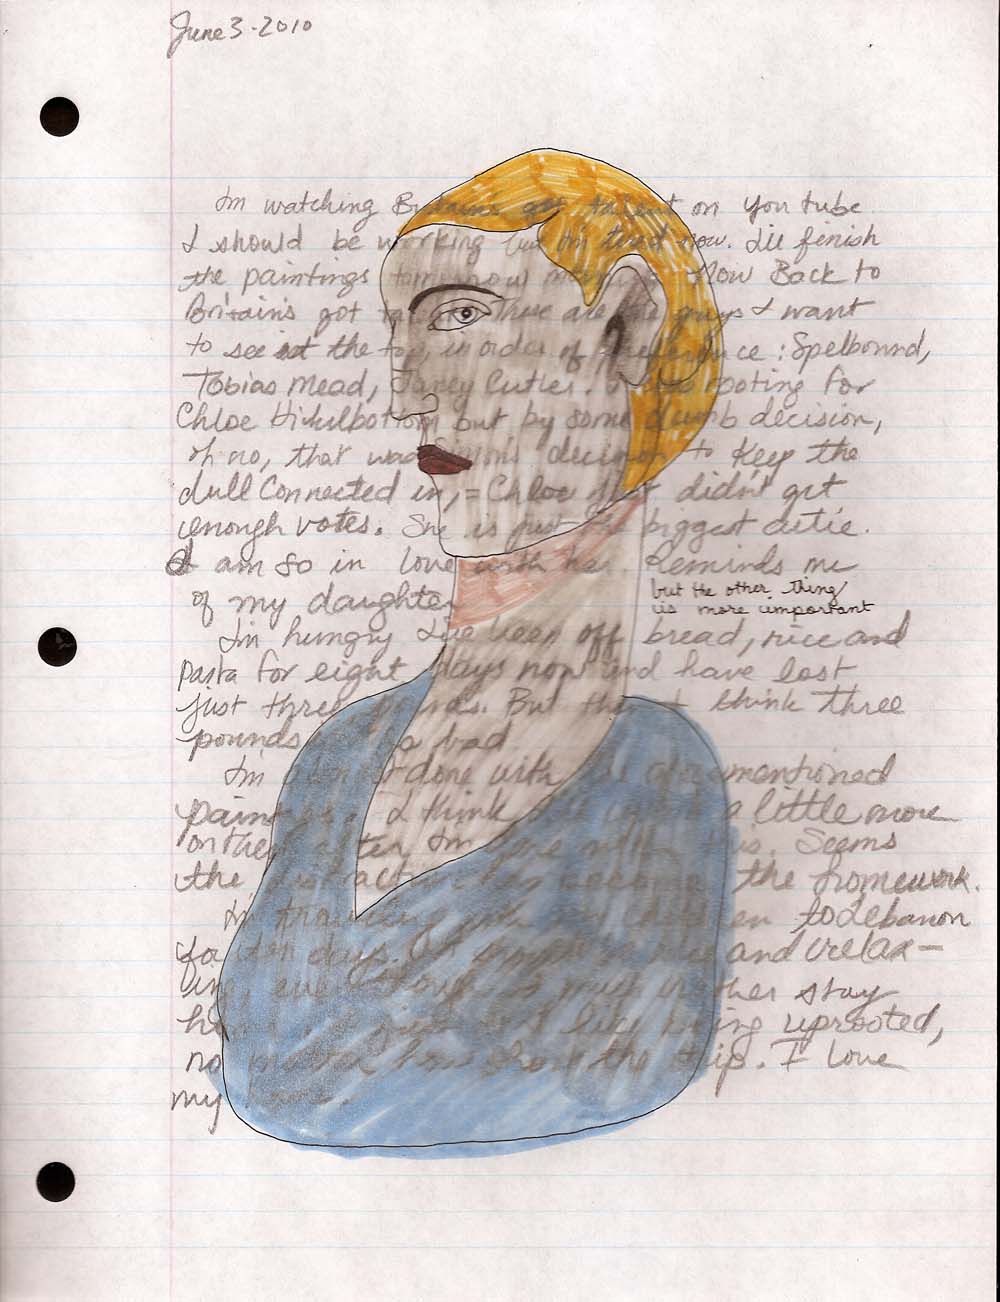 June 3-2010
Im watching Britain's got talent on you tube
I should be working but Im tired now. I'll finish
the paintings tomorrow Now Back to
Britain's got talent These are the guys I want
to see at the top, in order of preference: Spelbound,
Tobias Mead, Janey Cutler. I was rooting for
Chloe Hickulbottom but by some dumb decision,
oh no, that was Simon's decision to Keep the
dull Connected in, = Chloe didn't get
enough votes. She is just the biggest cutie.
I am so in love with her Reminds me
of my daughter
but the other thing
is more important
Im hungry I've been off bread, rice and
pasta for eight days now and have lost
just three pounds. But then I think three
pounds bad
I'm almost done with the aforementioned
paintings I think a little more
on them after Im done with this. Seems
the distraction has become the framework.
Im traveling with my children to Lebanon
for ten days. and relax-
ing, even though I much rather stay
here being uprooted,
no matter how short the trip. I love
my home.